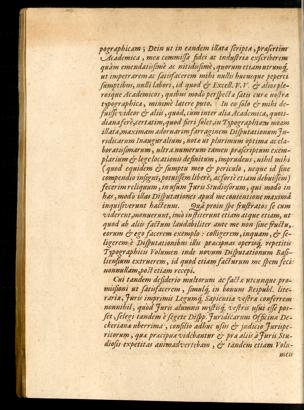 pographicam; Dein ut in eandem illata scripta, præsertim
Academica, mea commissa fidei ac industriâ exscriberem
quàm emendatissimè ac nitidissimè, quorum etiam utrumq́,
ut impetrarem ac satisfacerem mihi nullis hucusque peperci
sumptibus, nulli labori, id quod & Excell. V. V. & alios ple-
rosque Academicos, quibus modò perspecta satis cura nostra
typographica, minimè latere puto. In eo solo & mihi de-
fuisse videor & aliis, quod, cum inter alia Academica, quoti-
diana ferè, certatim, quod fieri solet, in Typographiam meam
illata, maximam adorarim farraginem Disputationum Ju-
ridicarum Inauguralium, nota ut plurimum optima ac ela-
boratissimarum, ultra numerum tamen præscriptum exem-
plarium & lege locationis definitum, imprudens, nihil mihi
(quod equidem & sumptu meo & periculo, neque id sine
compendio insigni, potuissem liberè, ac ferè etiam debuissem)
fecerim reliquum, in usum Juris Studiosorum, qui modò in
has, modò illas Disputationes apud me contentione maximâ
inquisiverunt hactenus. Quâ proin spe frustratos se cum
viderent, monuerunt, imò institerunt etiam atque etiam, ut
quod ab aliis factum laudabiliter ante me non sine fructu,
eorum & ego facerem exemplo: colligerem, inquam, & se-
ligerem è Disputationibus illis præcipuas operiq́, repetitis
Typographicis Volumen inde novum Disputationum Basi-
liensium extruerem, id quod etiam facturum me spem feci
nonnullam, post etiam recepi.
Cui tandem desiderio multorum ac factæ utcunque pro-
missioni ut satisfacerem, simulq́, in bonum Reipubl. lite-
rariæ, Juris imprimis Legumq́, Sapientiæ vestra conferrem
nonnihil, quod Juris alumnis mystisq́, vestris usui esse pos-
set, selegi tandem è segete Dispp. Juridicarum Officinæ De-
ckerianæ uberrima, consilio adhuc usus & judicio Jurispe-
ritorum, quæ præcipuæ videbantur & præ aliis à Juris Stu-
diosis expetitas animadvertebam, & tandem etiam Volu-